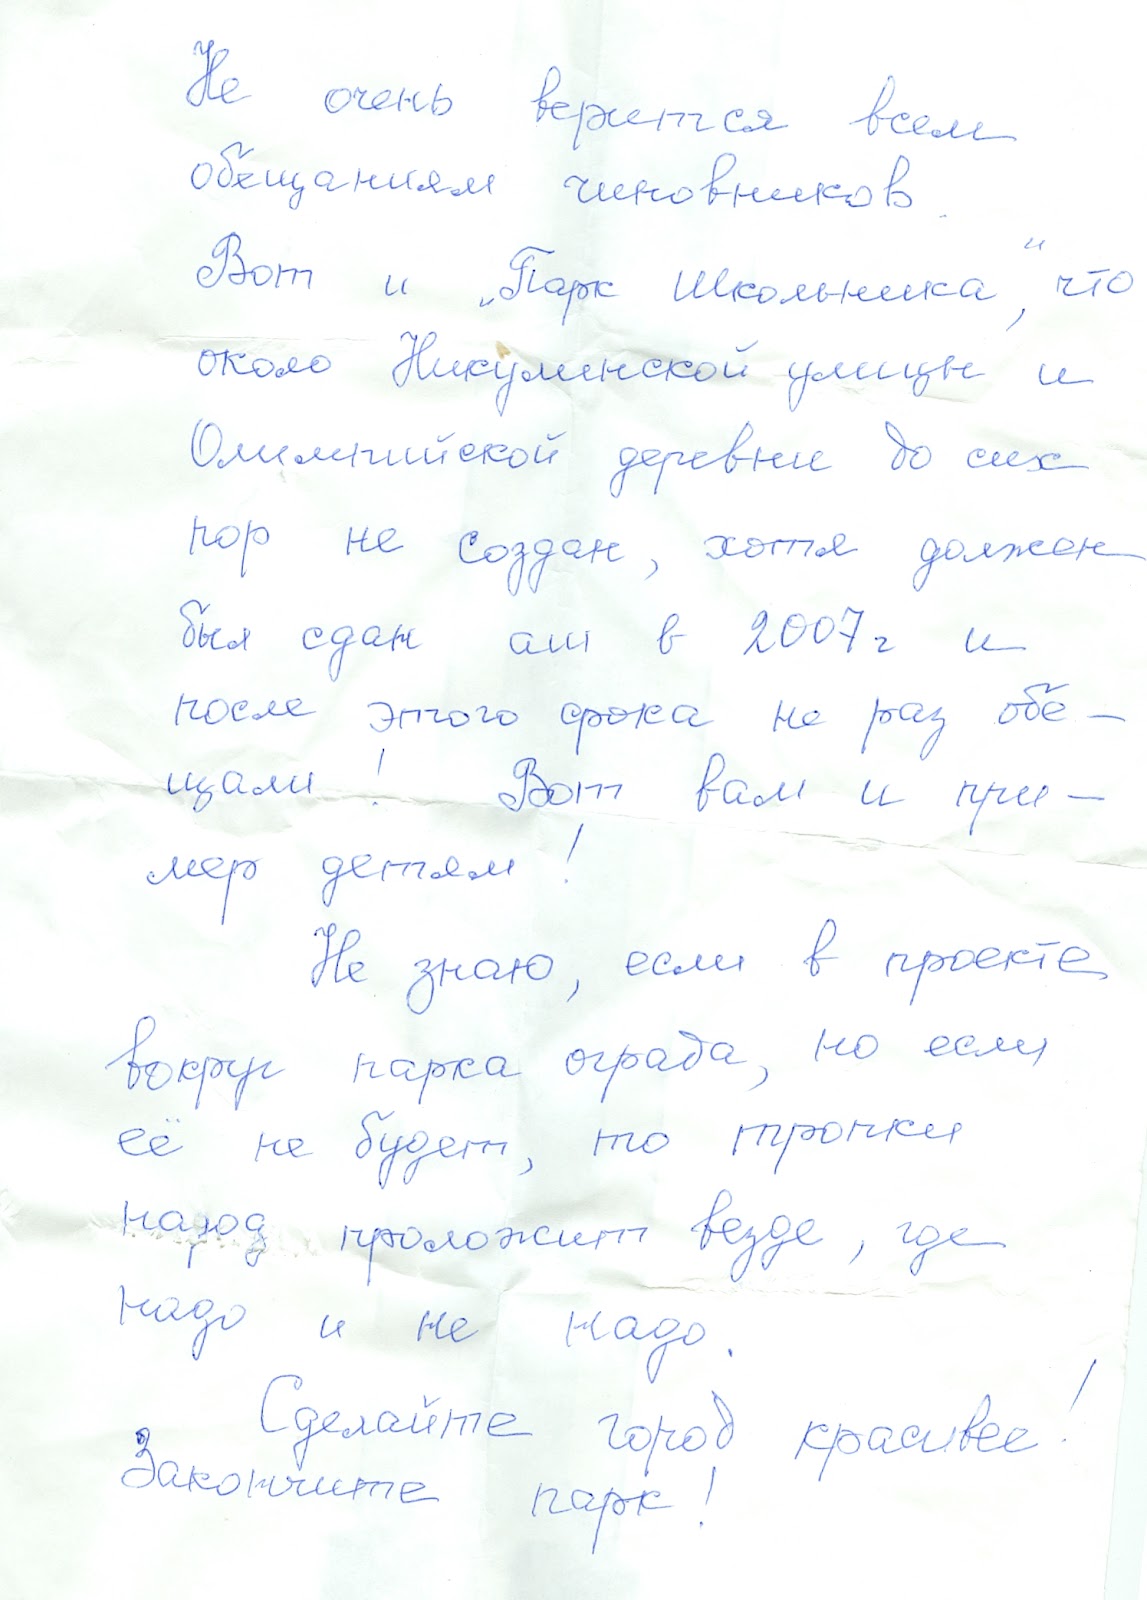 Не очень верится всем
обещаниям чиновников.
Вот и „Парк Школьника“, что
около Никулинской улицы и
Олимпийской деревни до сих
пор не создан, хотя должен
был сдан аш в 2007г и
после этого срока не раз обе-
щали! Вот вам и при-
мер детям!
Не знаю, если в проекте
вокруг парка ограда, но если
её не будет, то тропки
народ проложит везде, где
надо и не надо.
Сделайте город красивее!
Закончите парк!